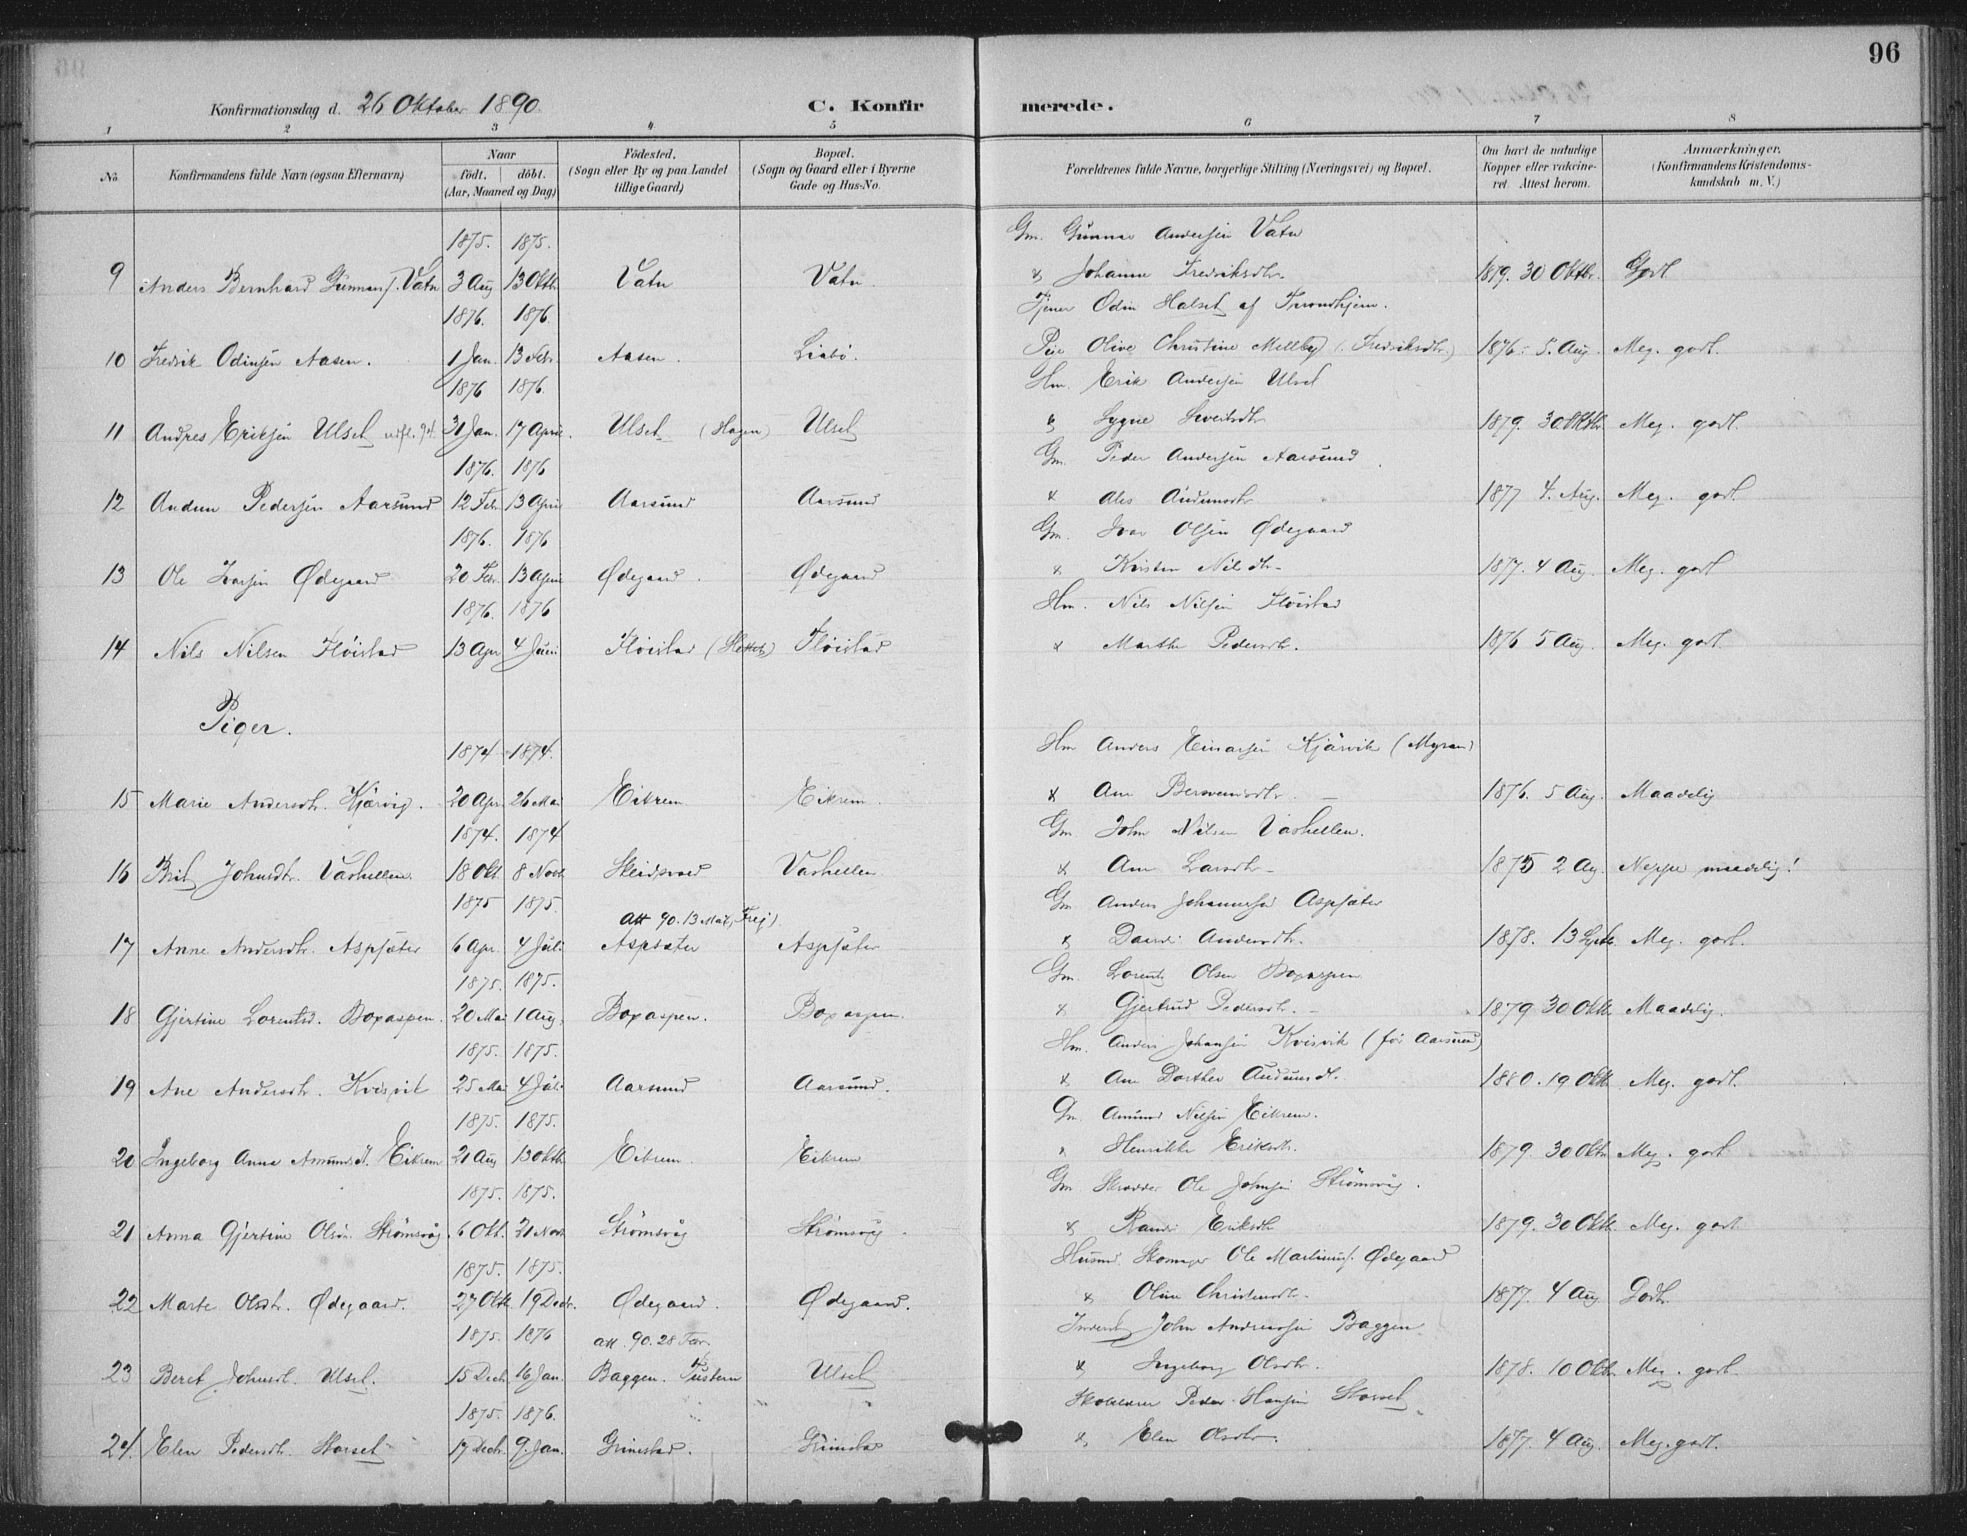 96
Konfirmationsdag d. 26 Oktober 1890.
C. Konfirmerede.
1 2 3 4 5 6 7 8
No.
Konfirmandens fulde Navn (ogsaa Efternavn)
Naar
födt. döbt.
(Aar, Maaned og Dag)
Födested.
(Sogn eller By og paa Landet
tillige Gaard)
Bopæl.
(Sogn og Gaard eller i Byerne
Gade og Hus-No.
Forældrenes fulde Navne, borgerlige Stilling (Næringsvei) og Bopæl.
Om havt de naturlige
Kopper eller vakcine-
ret. Attest herom.
Anmærkninger.
(Konfirmandens Kristendoms-
kundskab m. V.)
1875. 1875. Gm. Gunnar Andersen Vatn
9 Anders Bernhard Gunnars. Vatn 3 Aug 13 Oktb. Vatn Vatn. & Johanne Fredriksdtr. 1879. 30 Oktbr. Godt
1876. 1876. Tjener Odin Halset af Trondhjem.
10 Fredrik Odinsen Aasen. 1 Jan. 13 Febr. Aasen. Liabö. Pige Olive Christine Mellby (Fredriksdtr.) 1876. 5. Aug. Meg. godt.
1876 1876. Hm. Erik Andersen Ulset
11 Andres Eriksen Ulset 31 Jan. 17 April. Ulset (Hagen) Ulset & Sygne Sivertsdtr 1879. 30 Oktbr. Meg. godt.
1876. 1876 Gm. Peder Andersen Aarsund
12 Audun Pedersen Aarsund 12 Febr. 13 April Aarsund Aarsund & Ales Audunsdtr 1877 4. Aug. Meg. godt.
1876. 1876 Gm. Ivar Olsen Ødegaard
13 Ole Ivarsen Ødegaard 20 Febr. 13 April Ødegaard. Ødegaard & Kristen Nilsdtr. 1877. 4 Aug. Meg. godt
1876. 1876 Hm. Nils Nilsen Flöistad
14 Nils Nilsen Flöistad 13 Apr 4 Juni Flöistad Flöistad & Marthe Pedersdtr. 1876 5 Aug. Meg. godt.
Piger.
1874 1874. Hm Anders Einarsen Kjärvik (Myran)
15 Marie Andersdtr. Kjärvig. 20 Apr. 26 Mai Eikrem Eikrem. & Ane Bersvensdtr. 1876. 5 Aug. Maadelig
1874. 1874 Gm. John Nilsen Vashellen.
16 Brit Johnsdtr. Vashellen. 18 Okt 8 Novb. Skeidsvad Vashellen. & Ane Larsdtr. 1875 2 Ag. Neppe maadelig!
1875 1875. Att 90. 13 Mai, Frej). Gm Anders Johannesen Aspsäter
17 Anne Andersdtr. Aspsäter 6 Apr. 4 Juli Aspsæter Aspsäter & Dordi Andersdtr. 1878. 13 Septbr. Meg. godt.
1875. 1875. Gm. Lorents Olsen Boxaspen
18 Gjertine Lorentsd. Boxaspen. 20 Mai 1 Aug. Boxaspen. Boxaspen. & Gjertrud Pedersdtr. 1879 30 Oktb. Maadelig.
1875. 1875. Hm. Anders Johansen Kvisvik (för Aarsund)
19 Ane Andersdtr. Kvisvik 25 Mai 4 Juli Aarsund Aarsund. & Ane Dorthea Audunsdt. 1880. 19 Oktb. Meg. godt.
1875. 1875. Gm. Amund Nilsen Eikrem.
20 Ingeborg Anna Amundsdt. Eikrem 21 Aug 13 Oktb. Eikrem. Eikrem & Henrikke Eriksdtr. 1879. 30 Oktb. Meg. godt
1875. 1875. Gm. Skrædder Ole Johnsen Strömsvåg.
21 Anna Gjertine Olsdr. Strömsvåg. 6 Okt. 21 Novb. Strömsvåg Strömsvåg. & Randi Eriksdtr 1879. 30 Oktb. Meg. godt
1875. 1875. Husmd. Skomager Ole Martinus. Ødegaard
22 Marte Olsdtr. Ødegaard. 27 Oktb. 19 Decbr. Ødegaard. Ødegaard. & Oline Christensdtr. 1877. 4 Aug Godt.
1875. 1876 att. 90. 28 Febr. Inderst John Andreassen Baggen
23 Beret Johnsdt. Ulset. 15 Decb. 16 Jan. Baggen. Tustern Ulset & Ingeborg Olsdtr. 1878. 10 Oktb. Meg. godt.
1875. 1876. Skolelærer Peder Hansen Storset
24. Elen Pedersdtr. Storset 17 Decb. 9. Jan. Grimstad. Grimstad & Elen Olsdtr. 1877. 4 Aug. Meg. godt.